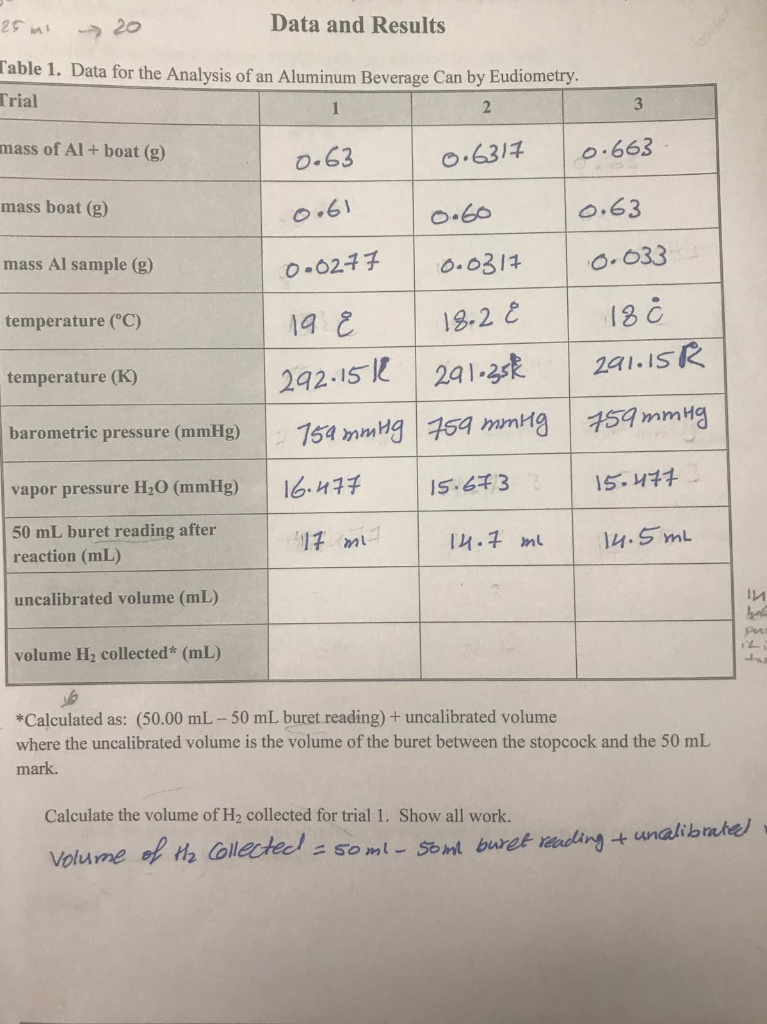 25 ml → 20
Data and Results
Table 1. Data for the Analysis of an Aluminum Beverage Can by Eudiometry.
Trial 1 2 3
mass of Al + boat (g) 0.63 0.6317 0.663
mass boat (g) 0.61 0.60 0.63
mass Al sample (g) 0.0277 0.0317 0.033
temperature (°C) 19 °C 18.2 °C 18 °C
temperature (K) 292.15 K 291.35K 291.15 K
barometric pressure (mmHg) 759 mmHg 759 mmHg 759 mmHg
vapor pressure H₂O (mmHg) 16.477 15.673 15.477
50 mL buret reading after
reaction (mL) 17 ml 14.7 mL 14.5 mL
uncalibrated volume (mL)
volume H₂ collected* (mL)
*Calculated as: (50.00 mL – 50 mL buret reading) + uncalibrated volume
where the uncalibrated volume is the volume of the buret between the stopcock and the 50 mL
mark.
Calculate the volume of H₂ collected for trial 1. Show all work.
Volume of H₂ Collected = 50 ml - 50ml buret reading + uncalibrated